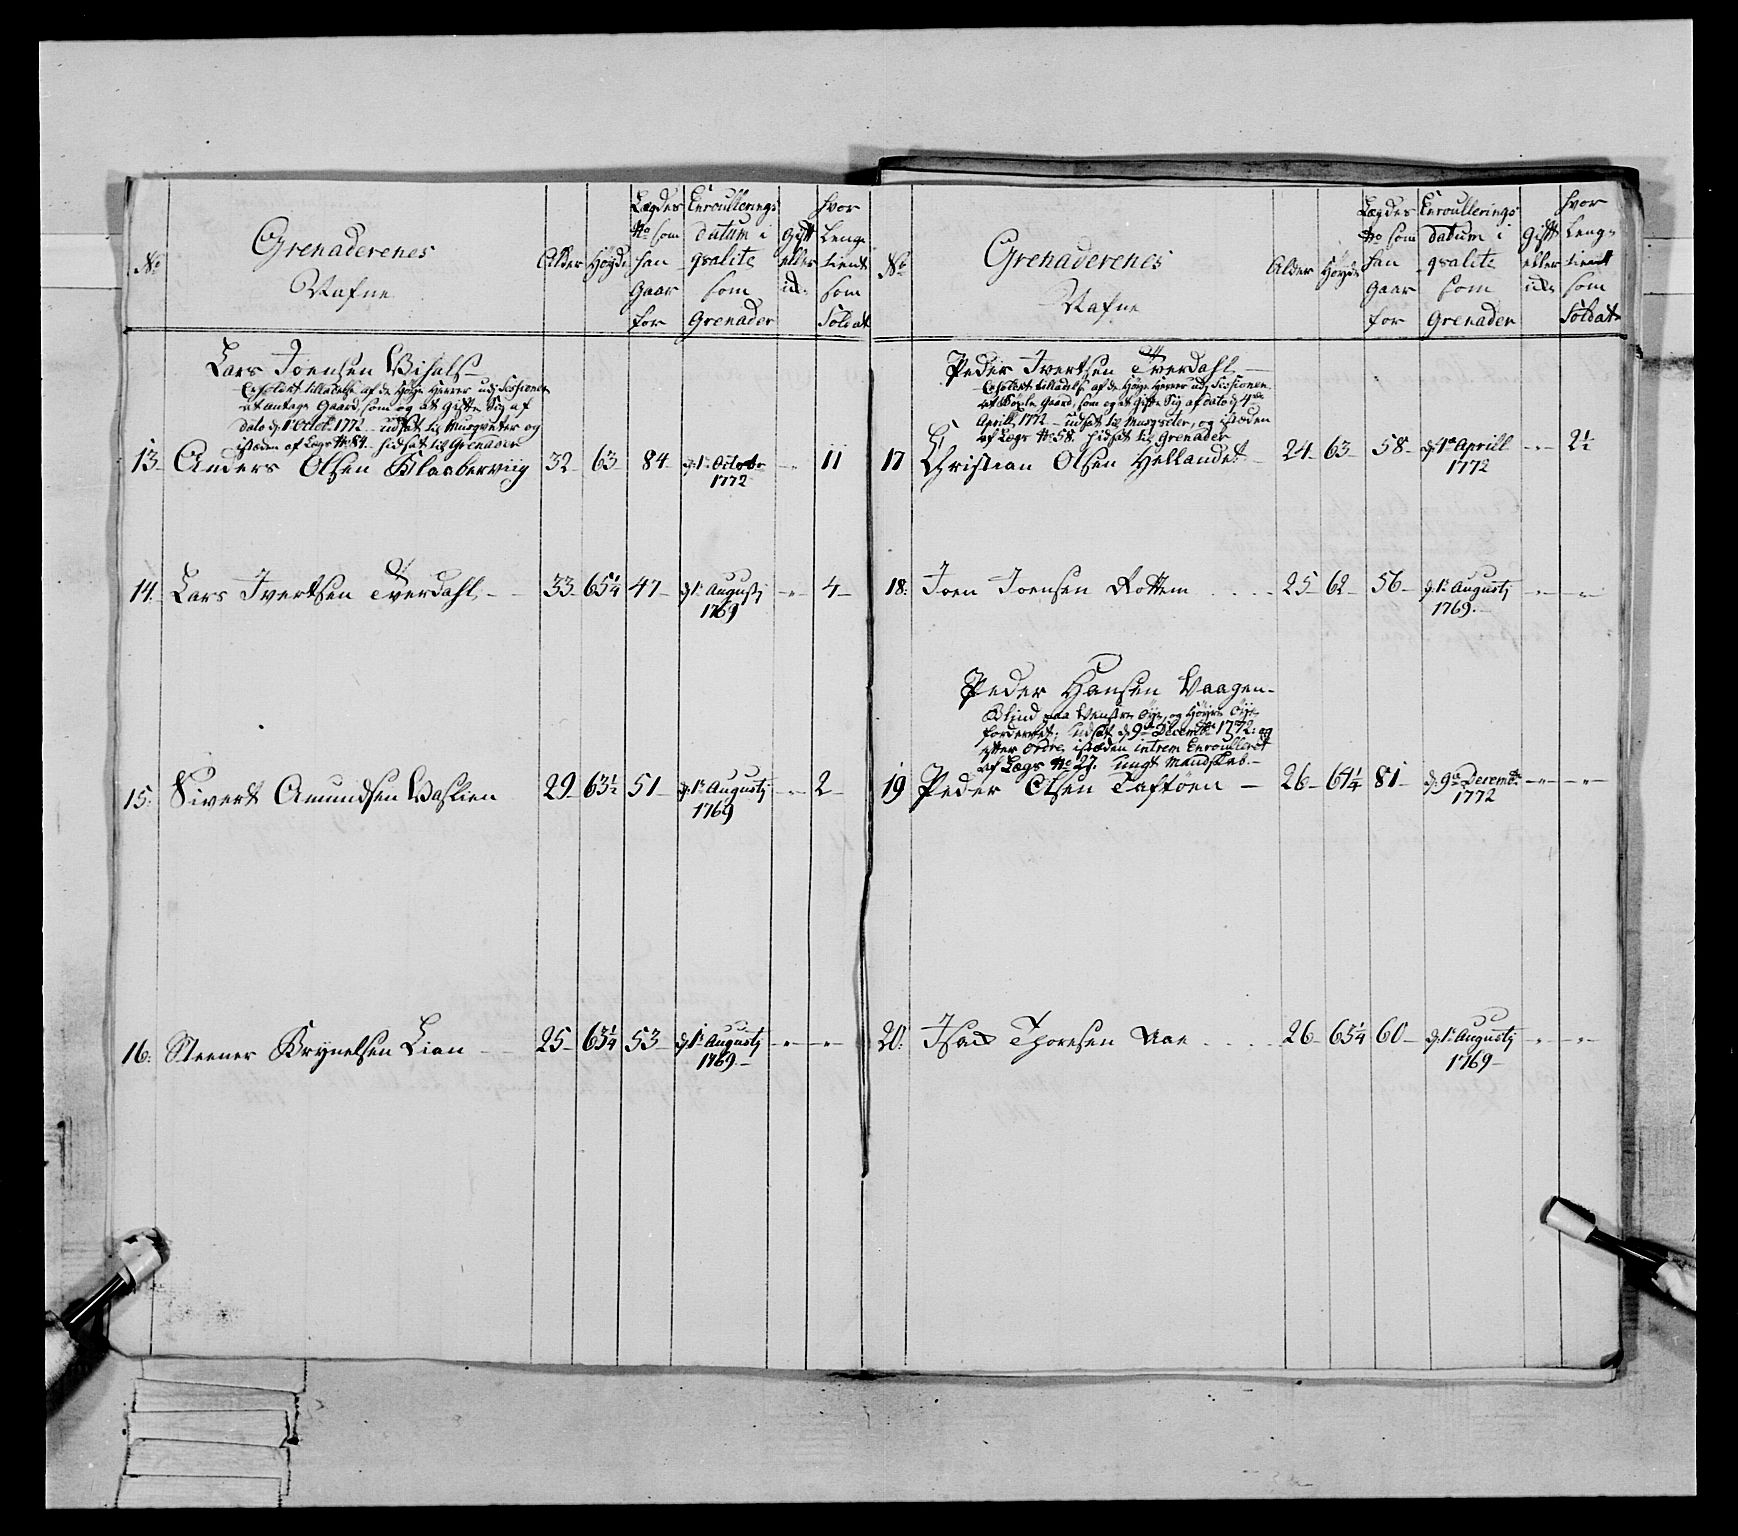 No
Grenaderenes
Nafne
Alder
Høyde
Lægdes
No som
han
Gaar
for
Enroullerings
datum i
qvalite
som
Grenader
Gift
eller
ui
hvor
Længe
tient
som
Soldat
Lars Joensen
Erholdet tilladelse af de Høye Herrer udj Sessionen
at antage Gaard, som og at gifte Sig af
dato d 1 Octob. 1772 udsat til Musqveter og
isteden af Lægs No 84 hidsat til Grenader
13 Anders Olsen 32 63 84 d. 1te Octobr 11
1772
14. Lars Ivertsen Tverdahl 33 65¼ 47 d. 1te Augustj 4
1769
15. Sivert Amundsen 29 63½ 51 d. 1te Augustj 2
1769
16. Steener Brynelsen Lien 25 63¼ 53 d. 1te Augustj
1769
No
Grenaderenes
Nafne
Alder
Høyde
Lægdes
No som
han
Gaar
for
Enroullerings
datum i
qvalite
som
Grenader
Gift
eller
ui
hvor
Længe
tient
som
Soldat
Peder Ivertsen Tverdahl
Erholdet tilladelse af de Høye Herrer udj Sessionen
at Gaard, som og at gifte Sig af dato d 4de
Aprill 1772 udsat til Musqveter, og isteden
af Lægs No 58. hidsat til Grenader
17 Christian Olsen Hellandet 24 63 58 d. Aprill 2½
1772
18. Joen Joensen Rottem 25 62 56 d. 1te Augustj
1769.
Peder Hansen Vaagen
Blind paa Venstre Øye, og Høyre Øye
fordervet; udsat d 9de Decembr 1772: og
efter ordre isteden intrem Enroulleret
af Lægs No 27. ungt Mandskab
19 Peder Olsen Taftøen 26 64¼ 81 d. 9de Decembr
1772
20. Isach Thoresen Aae 26 63¼ 60 d. 1te Augustj
1769